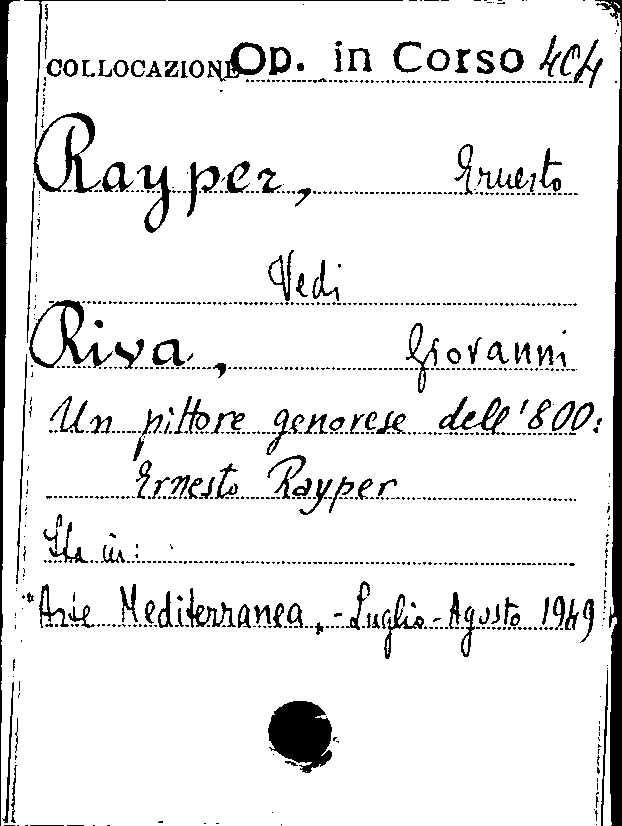 COLLOCAZIONE Op. in Corso 404
Rayper, Ernesto
Vedi
Riva, Giovanni
Un pittore genovese dell'800:
Ernesto Rayper
Sta in:
"Arte Mediterranea" - Luglio - Agosto 1949